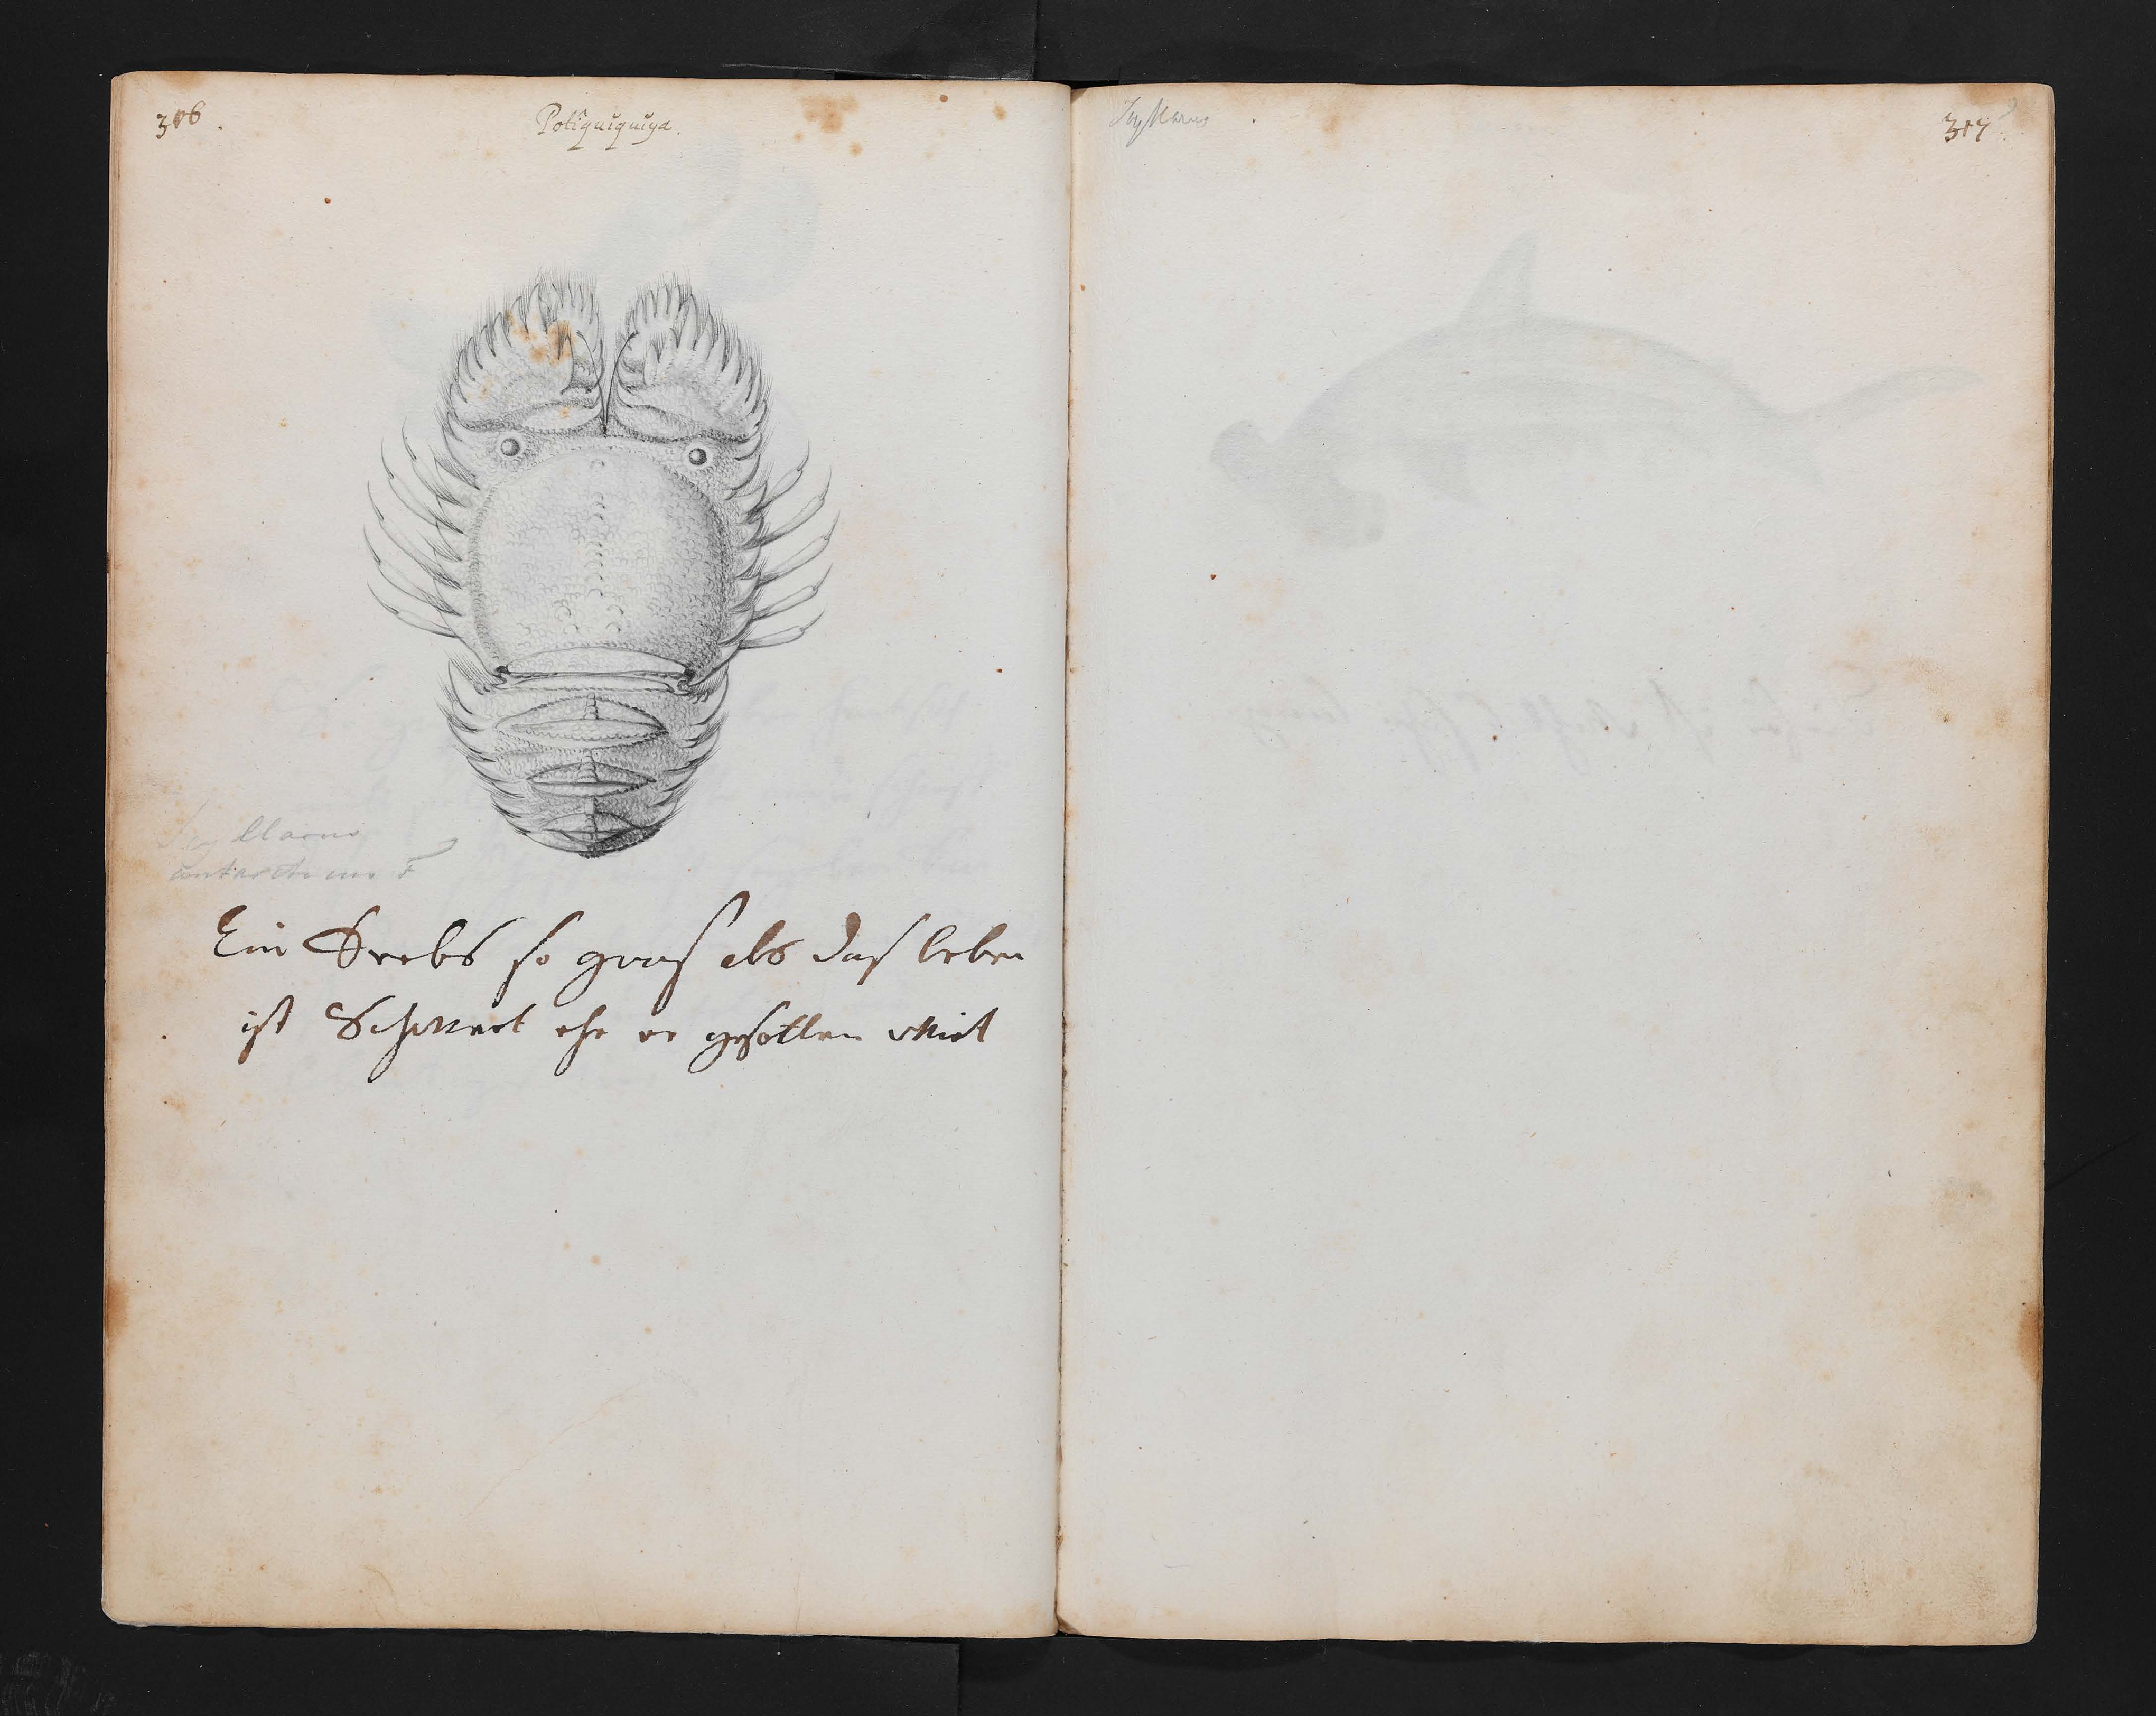 306.
Potiquiquiya.
Scyllarus
antarcticus F
Ein Krebs so groos als das leben
ist Schwart ehe er gesotten Wirt
Scyllarus
317